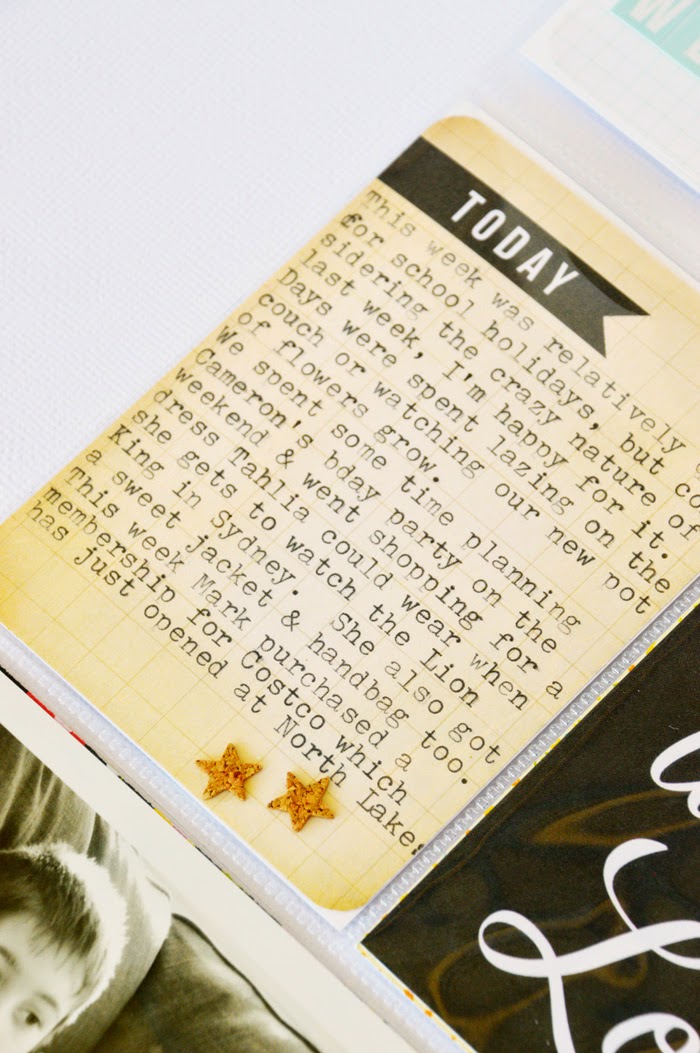 TODAY
This week was relatively
for school holidays, but
sidering the crazy nature of
last week, I'm happy for it.
Days were spent lazing on the
couch or watching our new pot
of flowers grow.
We spent some time planning
Cameron's bday party on the
weekend & went shopping for a
dress Tahlia could wear when
she gets to watch the Lion
King in Sydney. She also got
a sweet jacket & handbag too.
This week Mark purchased a
membership for Costco which
has just opened at North Lakes